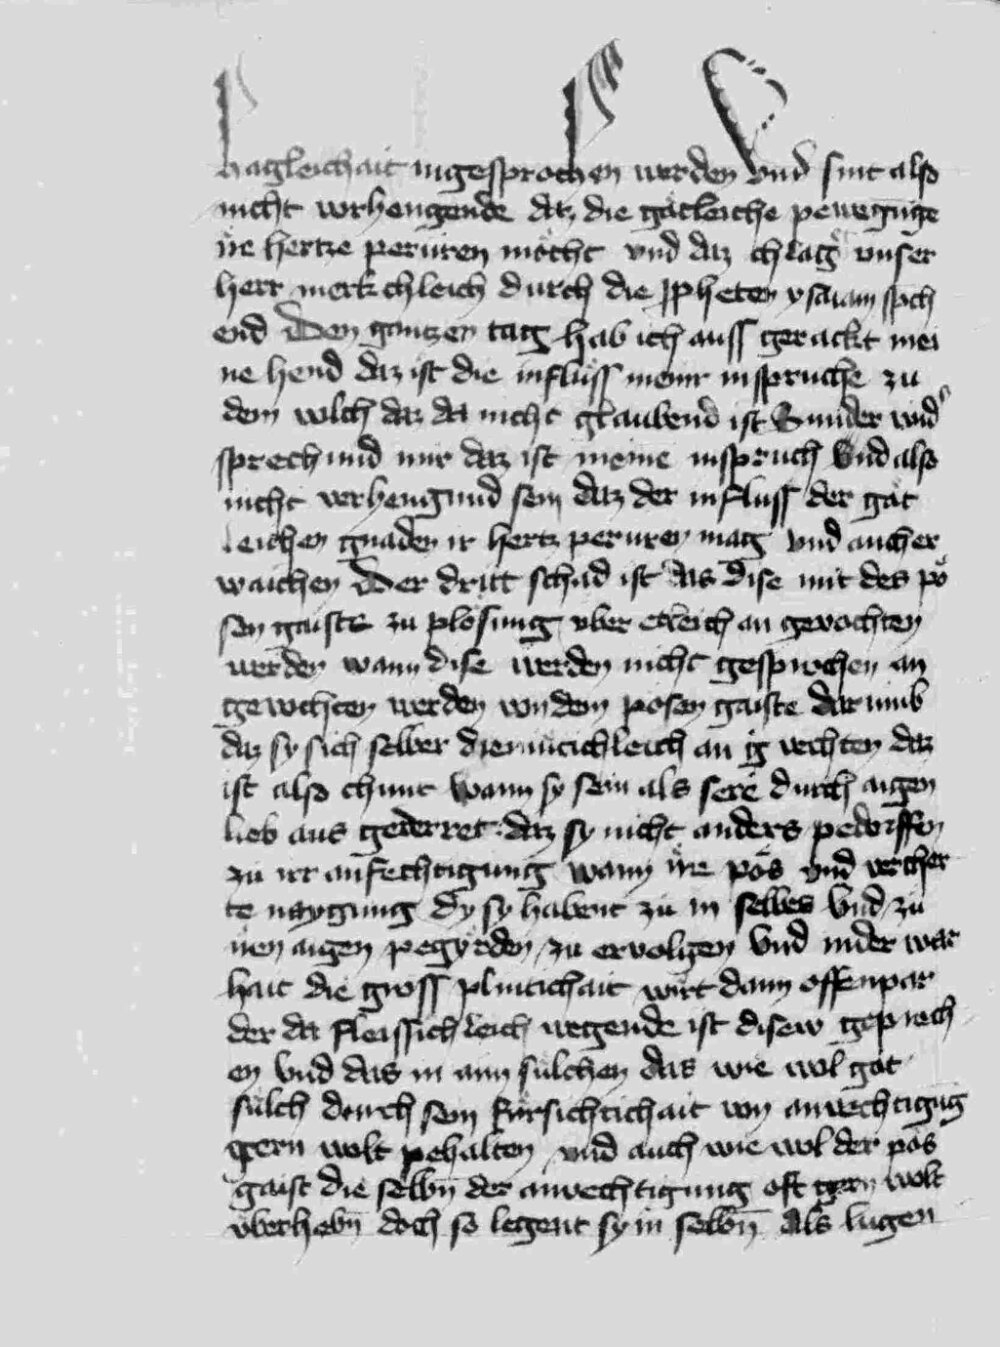 hagleichait ingesprochen werden vnd sint also
nicht verhengende daz die gotleiche pewegunge
ire hertze peruren mocht vnd daz chlagt vnser
herr merkchleich durch die ppheten ysaiam spch
end Den gantzen tag hab ich auss gerackt mei
ne hend daz ist die influss meinr inspruche zu
dem volch daz da nicht glaubend ist Sunder wid
sprechund mir daz ist meine inspruch Vnd also
nicht verhengund sein daz der influss der got
leichen gnaden ir hertz peruren mag vnd aucher
waichen Der dritt schad ist das dise mit des po
sen gaists zu plosung vber etleich an gevochten
werden wann dise werden nicht gesprochen an
gevochten werden von dem posen gaiste darumb
daz sy sich selber diemutichleich an ig vechten daz
ist also chunt wann sy sein als sere durch aigen
lieb aus gederret daz sy nicht anders pedorffen
zu irr anfechtigung wann ire pos vnd vercher
te naygung dy sy habent zu in selbes Vnd zu
iren aigen pegyrden zu ervolgen Vnd in der war
hait die gross plintichait wirt dann offenpar
der da fleissichleich wegende ist disew geprech
en Vnd das in aim sulchen das wie wol got
sulch durch sein fursichtichait von anvechtigug
gern wolt pehalten vnd auch wie wol der pos
gaist die selbn der anvechtigung oft gern wolt
vberhebn doch so legent sy in selbn als lugen